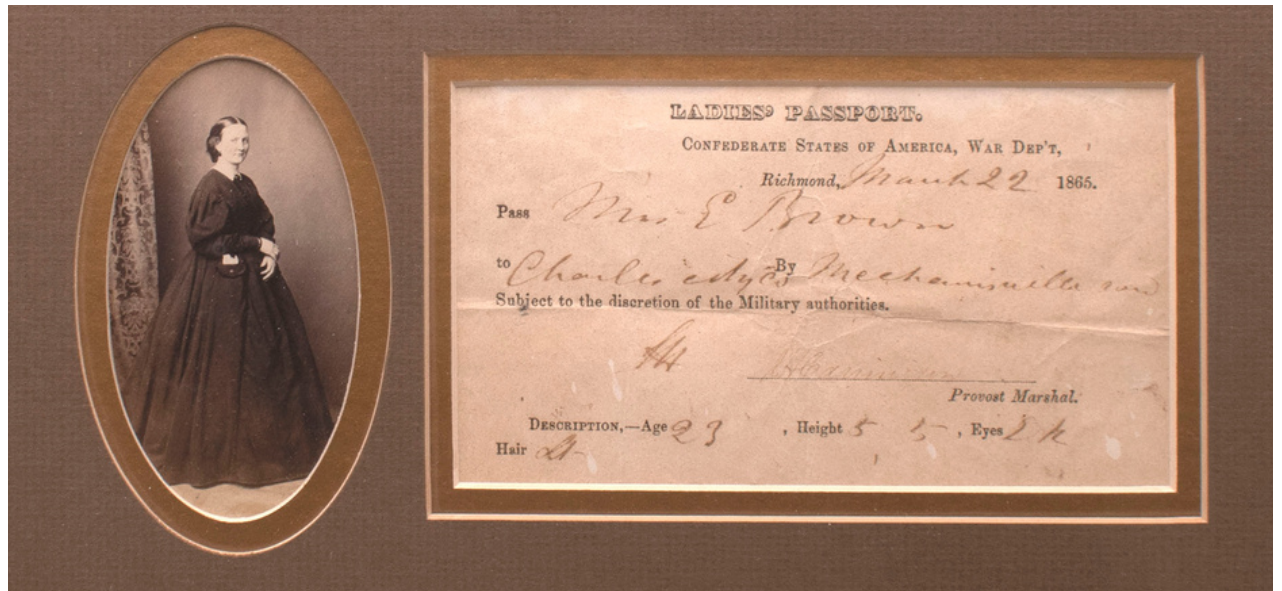 LADIES' PASSPORT.
CONFEDERATE STATES OF AMERICA, WAR DEP'T,
Richmond, March 22 1865.
Pass Mrs E Brown
to Charles city By Mechanicsville
Subject to the discretion of the Military authorities.
Provost Marshal.
DESCRIPTION,—Age 23 , Height 5 5 , Eyes
Hair